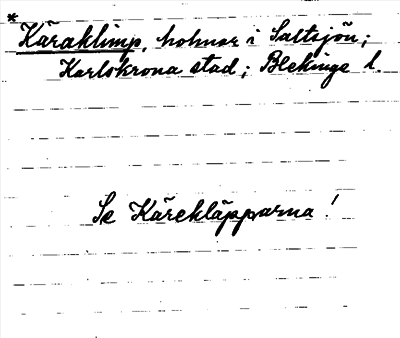 * Käraklimp, holmar i Saltsjön;
Karlskrona stad; Blekinge l.
Se Kärekläpparna!